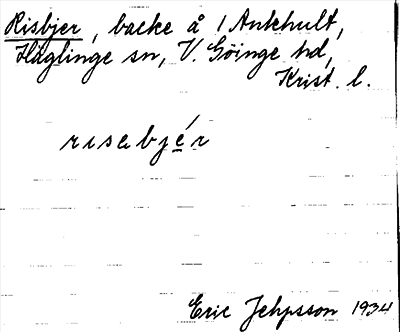 Risbjer, backe å 1 Ankhult,
Häglinge sn, V. Göinge hd,
Krist. l.
rɩsabjér
Eric Jehpsson 1934